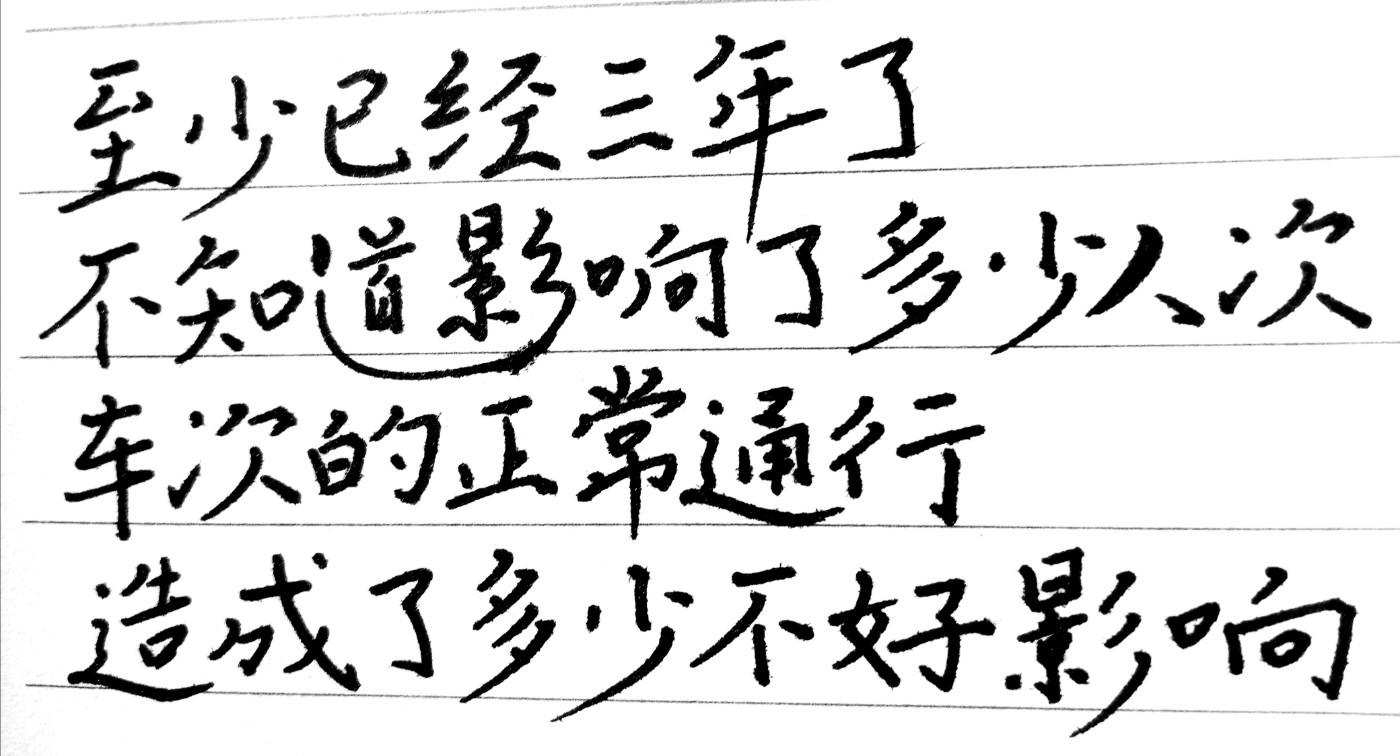 至少已经三年了
不知道影响了多少人次
车次的正常通行
造成了多少不好影响